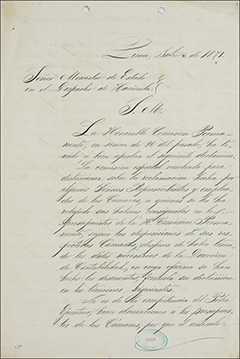 Lima, Julio 6 de 1871.
Señor Ministro de Estado
en el Despacho de Hacienda
S. M.
La Honorable Comision Perma-
nente, en sesion de 16 del pasado, ha te-
nido a bien aprobar el siguiente dictamen.
La comision especial nombrada para
dictaminar sobre la reclamacion hecha por
algunos Señores Representantes y emplea-
dos de las Camaras, a quienes se les ha
rebajado sus haberes consignados en los
Presupuestos de la H. Comision Perma-
nente, segun las disposiciones de sus res-
pectivas Camaras, despues de haber toma-
do los datos necesarios de la Direccion
de Contabilidad, en cuya oficina se han
hecho los descuentos, formula su dictamen
en los terminos siguientes.
No es de la competencia del Poder
Ejecutivo, hacer observaciones a los presupues-
tos de las Camaras, por que el articulo